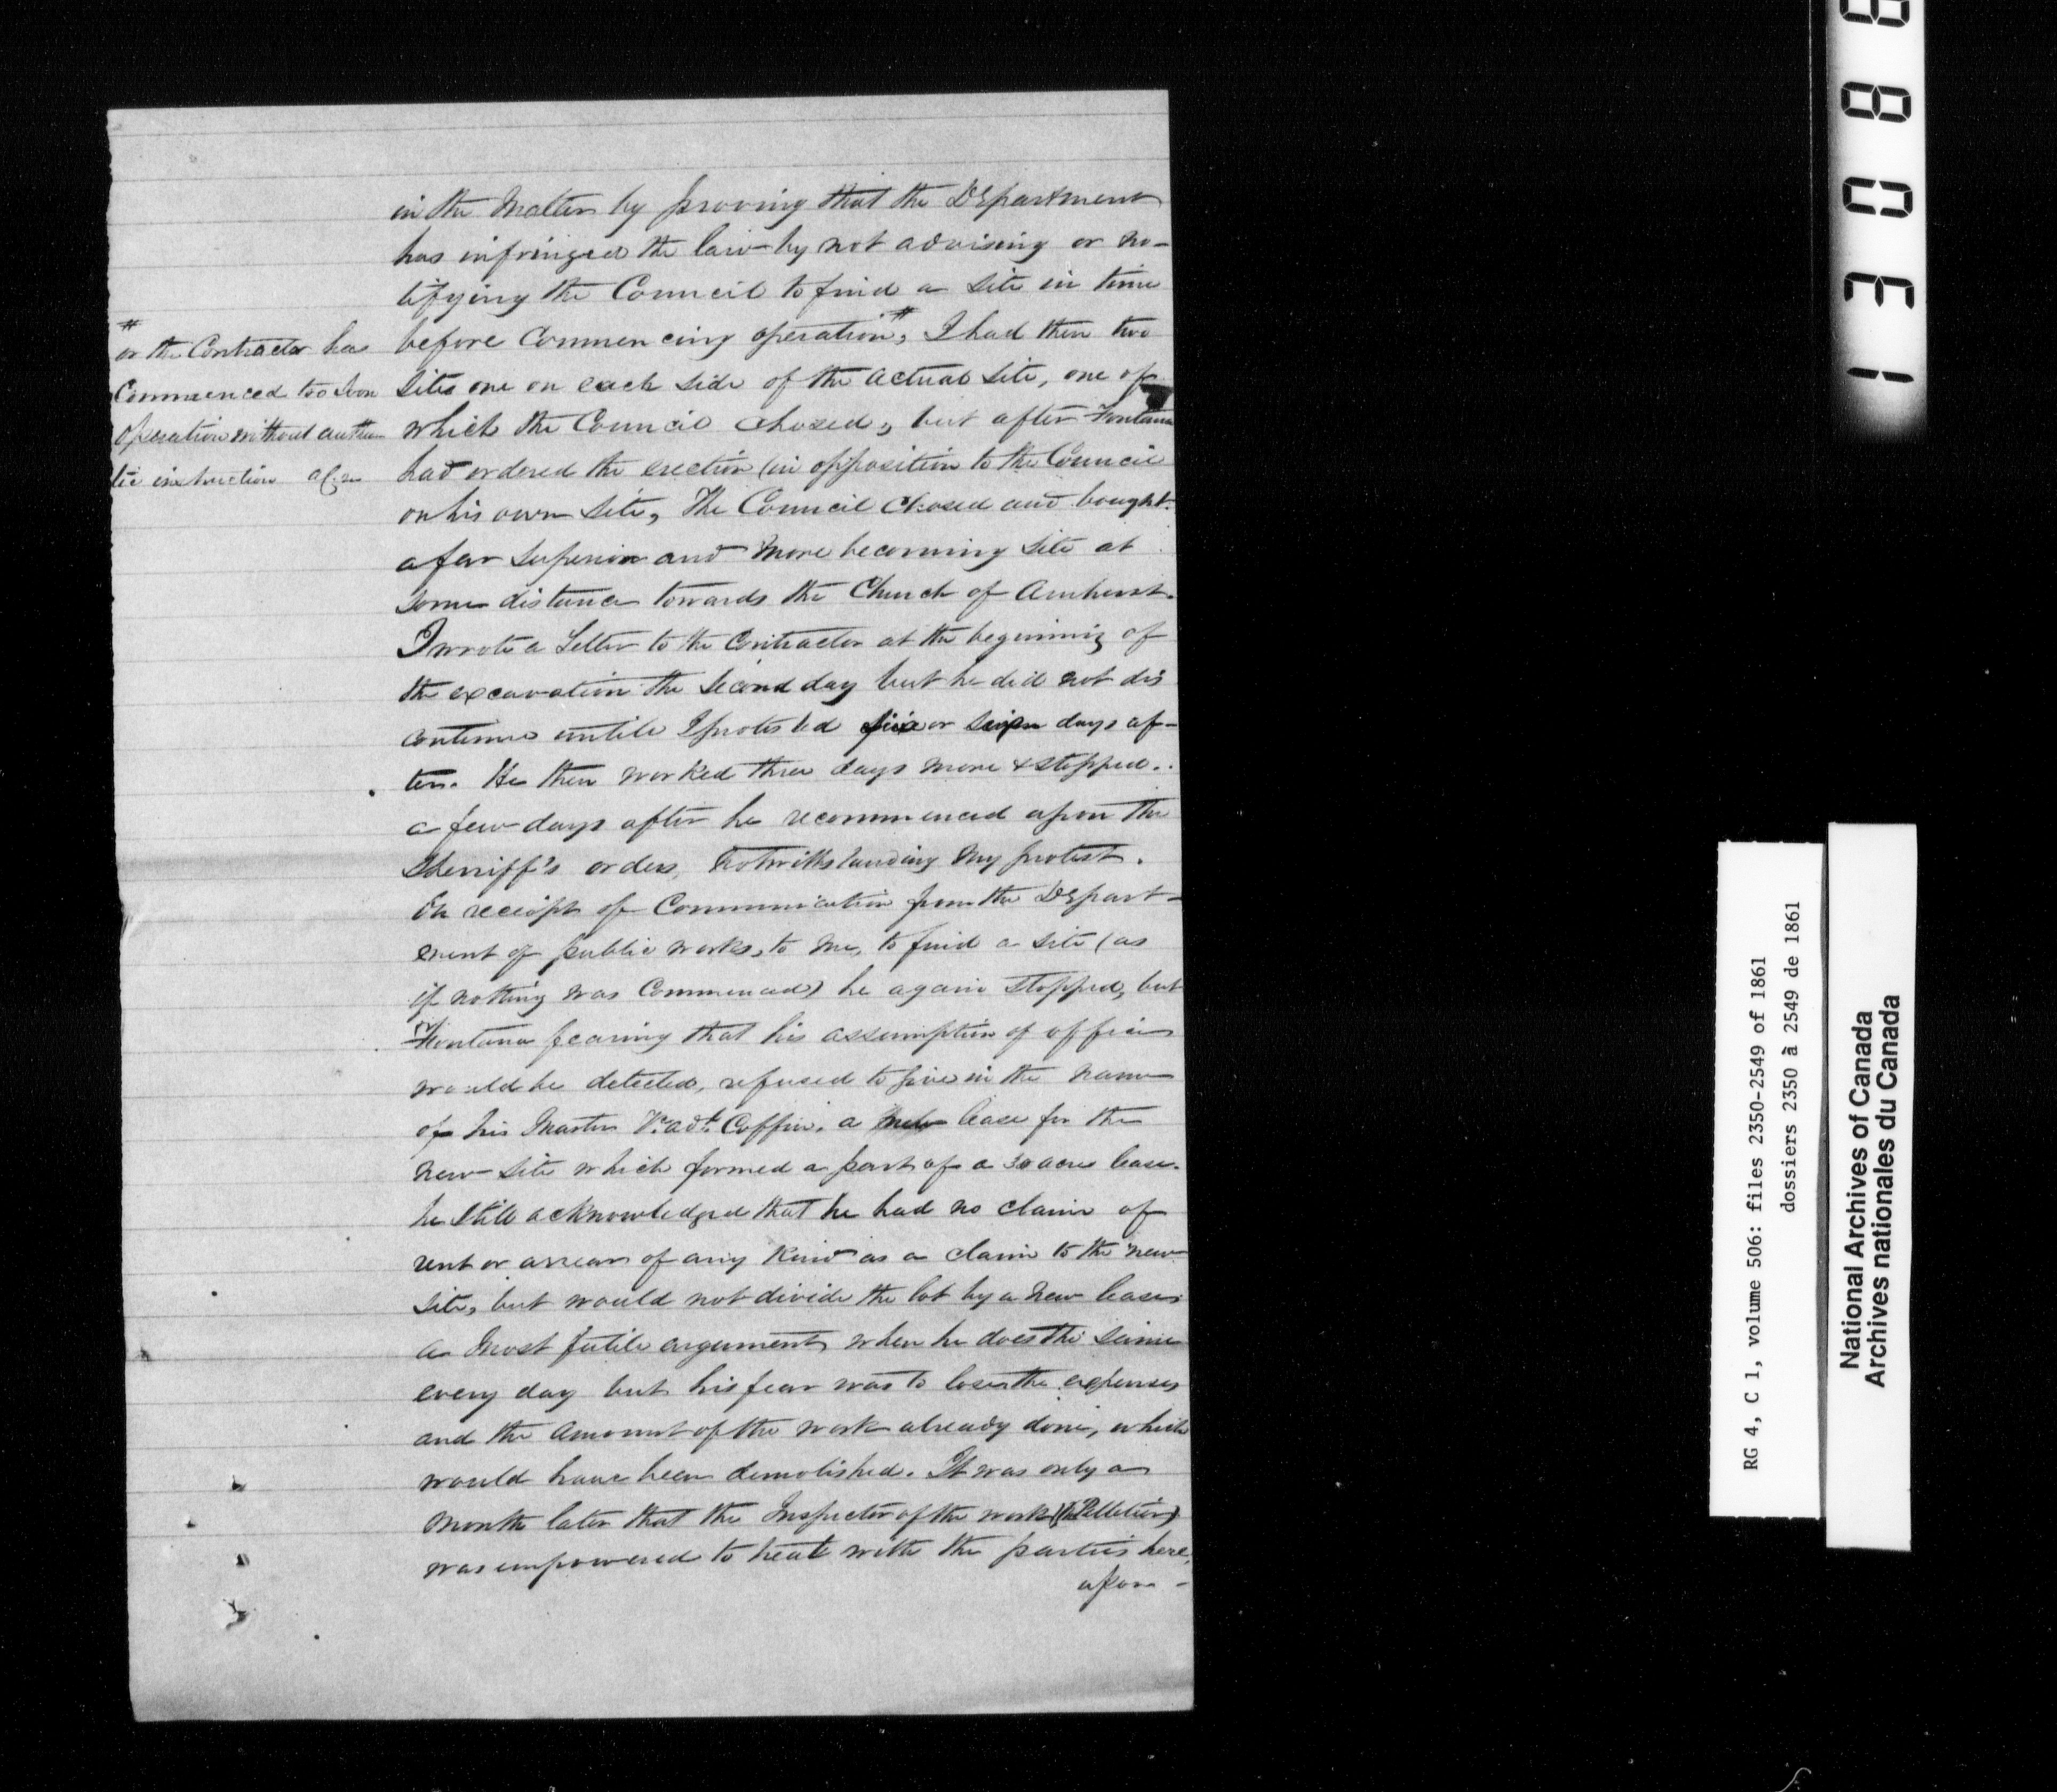 in the Matter by proving that the Department
has infringed the law by not advising or no-
tifying the Council to find a site in time
before Commencing operation#, I had then two
sites one on each side of the actual site, one of
which the Council chosed, but after Fontana
had ordered the erection (in opposition to the Council
on his own site, The Council chosed and bought
a far superior and more becoming site at
some distance towards the Church of Amherst.
I wrote a Letter to the Contractor at the beginning of
the excavation the second day but he did not dis
continue untile I protested six or seven days af-
ter. He then worked three days more & stopped.
a few days after he recommenced upon the
Sheriff's orders, notwithstanding my protest.
On receipt of Communication from the Depart-
ment of public works, to me, to find a site (as
if nothing was Commenced) he again stopped, but
Fontana fearing that his assumption of office
would be detected, refused to give in the name
of his Master Coffin, a new lease for the
new site which formed a part of a 30 acre lease.
he still acknowledged that he had no claim of
rent or arrears of any kind as a claim to the new
site, but would not divide the lot by a new lease
a most futile argument when he does the same
every day but his fear was to lose the expenses
and the amount of the work already done, which
would have been demolished. It was only a
month later that the Inspector of the work (Pelletier)
was empowered to treat with the parties here,
upon -
#
or the Contractor has
Commenced too soon
operation without authen
tic instruction
RG 4, C 1, volume 506: files 2350-2549 of 1861
dossiers 2350 à 2549 de 1861
National Archives of Canada
Archives nationales du Canada